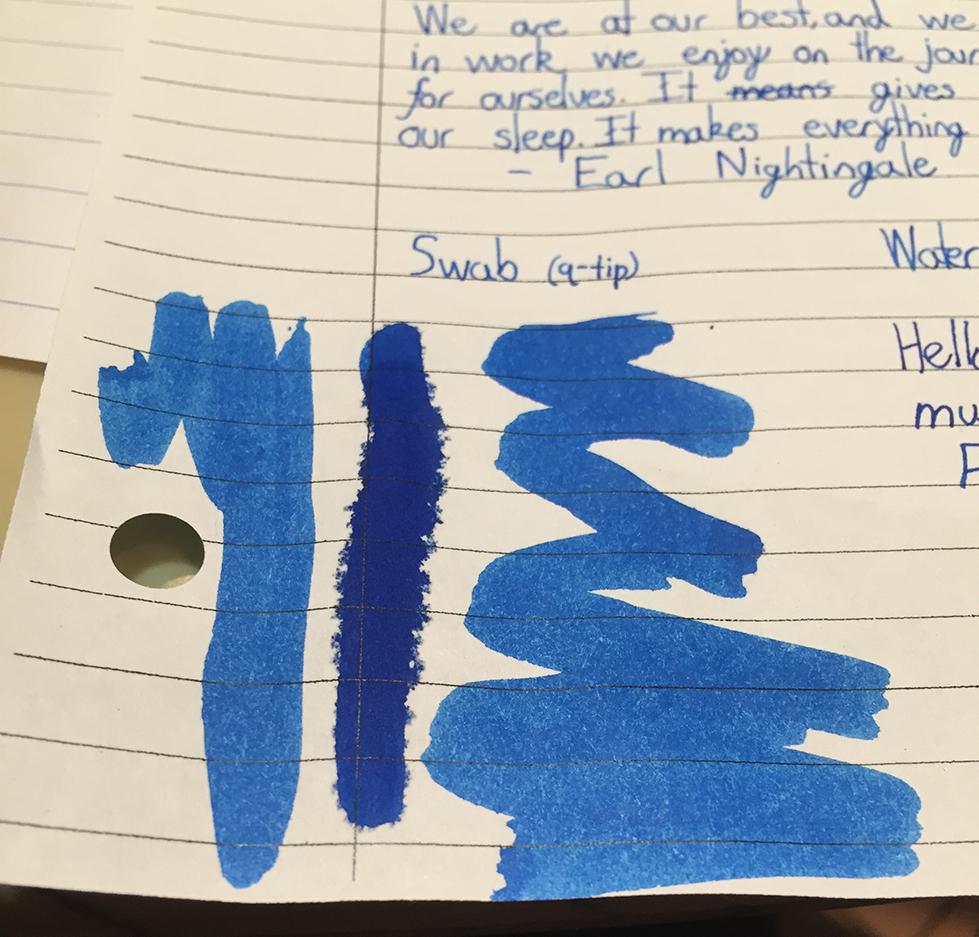 We are at our best, and we
in work we enjoy on the jour
for ourselves. It means gives
our sleep. It makes everything
- Earl Nightingale
Swab (q-tip)
Water
Hell
mu
F